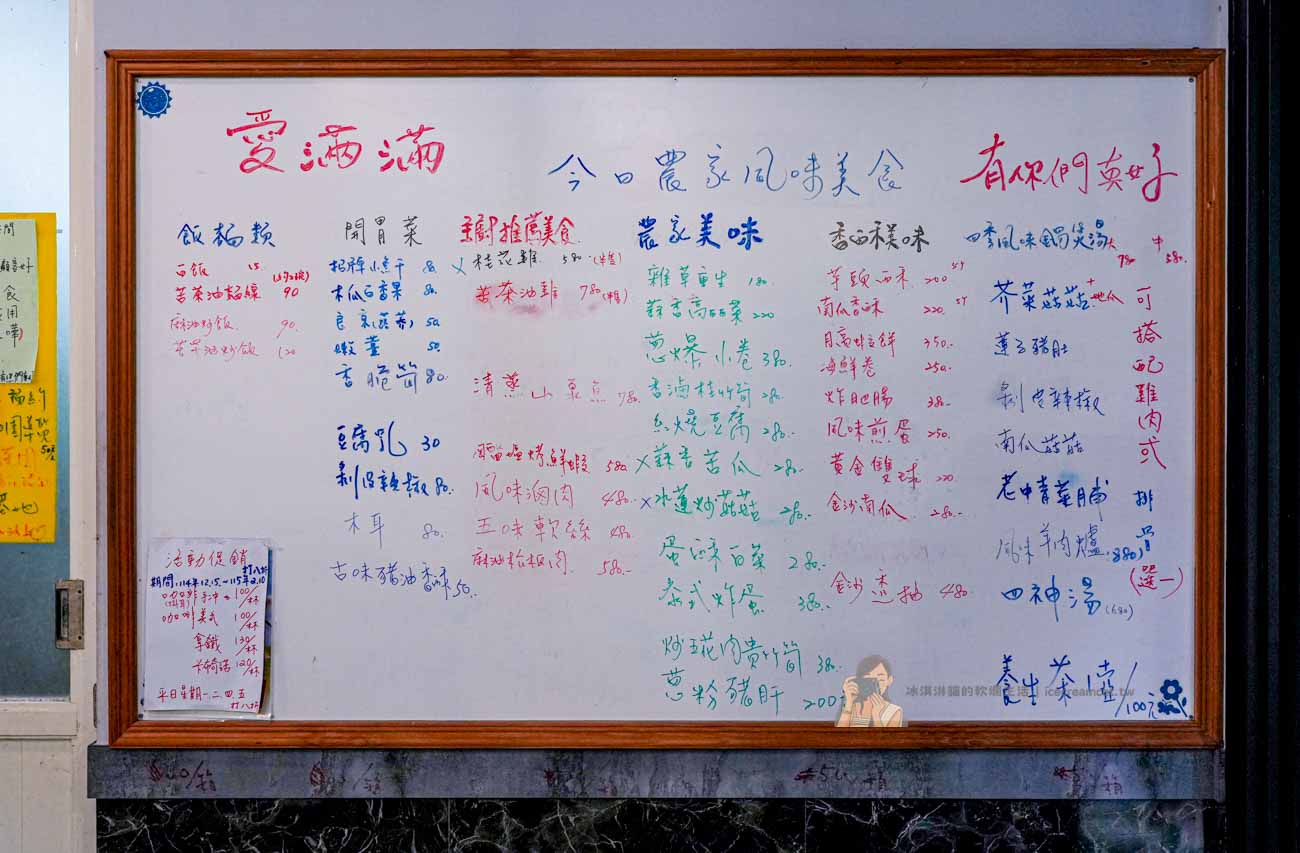 愛滿滿
今日農家風味美食
有你們真好
飯麵類
白飯 15
苦茶油麵線 90
麻油炒飯 90.
苦茶油炒飯 120
開胃菜
招牌小魚干 80.
木瓜百香果 80.
良京(蔬蕎) 50.
嫩薑 50.
香脆筍 80.
豆腐乳 30
剝皮辣椒 80.
木耳 80.
古味豬油香酥 50.
主廚推薦美食
X 桂花雞 580.(半隻)
苦茶油雞 780(半隻)
清蒸山泉魚 780.
胭脂塩烤鮮蝦 580.
風味滷肉 480.
五味軟絲 480.
麻油松板肉 580.-
農家美味
雞草重生 180.
蒜香高麗菜 220
蔥爆小卷 380.
香滷桂竹筍 280.
紅燒豆腐 280.
X 蒜香苦瓜 280.
X 水蓮炒菇菇 280.
蛋酥白菜 280.
泰式炸蛋 380.
炒五花肉貴竹筍 380.
蔥粉豬肝 200
香酥美味
芋頭西米 200 5Y
南瓜香酥 220. 5Y
月亮蝦餅 350.
海鮮卷 250.
炸肥腸 380.
風味煎蛋 250.
黃金雙球 220.
金沙南瓜 280.-
金沙透抽 480.
四季風味鍋煲湯 大 780 中 580.
芥菜菇菇+地瓜
蓮子豬肚
剝皮辣椒
南瓜菇菇
老中青菜脯
風味羊肉爐(880)
四神湯(680)
可搭配雞肉或排骨(選一)
養生茶1壺/100元
活動促銷
打八折
期間:114年12.15.~115年2.10
咖啡手沖 100/杯
咖啡美式 100/杯
拿鐵 130/杯
卡布諾 120/杯
平日星期一.二.四.五
打八折
冰淇淋貓的軟爛生活 | icecreamcat.tw